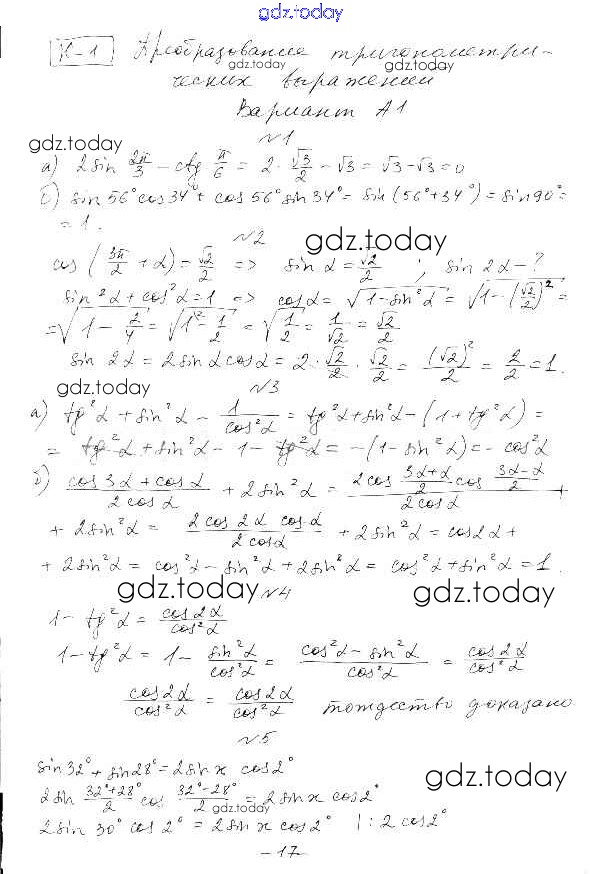 gdz.today
К-1 Преобразование тригонометри-
gdz.today gdz.today
ческих выражений
Вариант А1
gdz.today
№1
а) 2sin 2π/3 − ctg π/6 = 2 · √3/2 − √3 = √3 − √3 = 0
б) sin 56° cos 34° + cos 56° sin 34° = sin (56° + 34°) = sin 90° =
= 1.
№2
gdz.today
cos (3π/2 + α) = √2/2 => sin α = √2/2 ; sin 2α − ?
sin²α + cos²α = 1 => cos α = √(1 − sin²α) = √(1 − (√2/2)²) =
= √(1 − 2/4) = √(1 − 1/2) = √(1/2) = 1/√2 = √2/2
sin 2α = 2 sin α cos α = 2 · √2/2 · √2/2 = (√2)²/2 = 2/2 = 1.
gdz.today
№3
а) tg²α + sin²α − 1/cos²α = tg²α + sin²α − (1 + tg²α) =
= tg²α + sin²α − 1 − tg²α = −(1 − sin²α) = − cos²α
б) (cos 3α + cos α)/(2 cos α) + 2 sin²α = (2 cos (3α+α)/2 cos (3α−α)/2)/(2 cos α) +
+ 2 sin²α = (2 cos 2α cos α)/(2 cos α) + 2 sin²α = cos 2α +
+ 2 sin²α = cos²α − sin²α + 2 sin²α = cos²α + sin²α = 1.
gdz.today gdz.today
№4
1 − tg²α = cos 2α/cos²α
1 − tg²α = 1 − sin²α/cos²α = (cos²α − sin²α)/cos²α = cos 2α/cos²α
cos 2α/cos²α = cos 2α/cos²α тождество доказано
№5
sin 32° + sin 28° = 2 sin x cos 2°
gdz.today
2 sin (32°+28°)/2 cos (32°−28°)/2 = 2 sin x cos 2°
gdz.today
2 sin 30° cos 2° = 2 sin x cos 2° | : 2 cos 2°
− 17